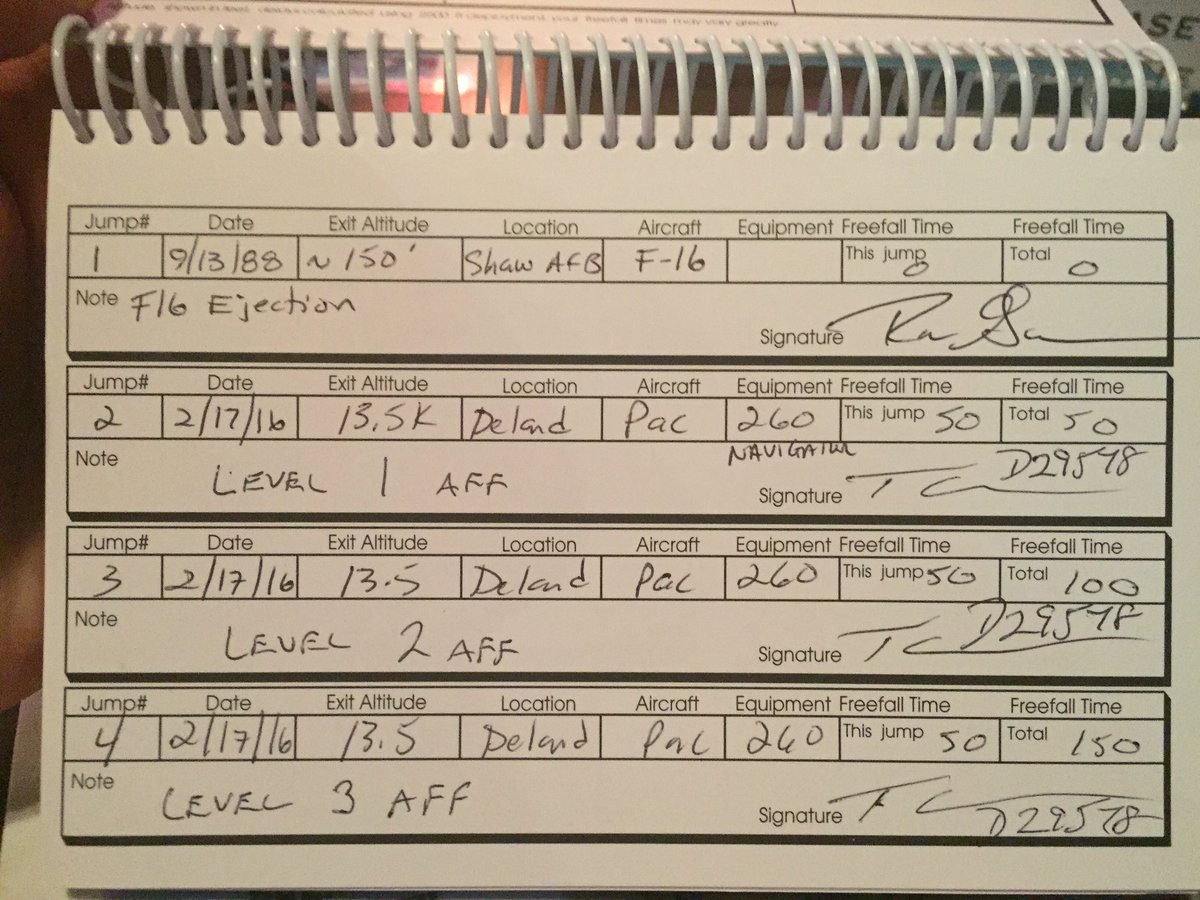 shown in feet. delays calculated using 2500 ft deployment. your freefall times may vary greatly.
ASE
Jump# Date Exit Altitude Location Aircraft Equipment Freefall Time Freefall Time
1 9/13/88 ~150' Shaw AFB F-16 This jump 0 Total 0
Note F16 Ejection
Signature
Jump# Date Exit Altitude Location Aircraft Equipment Freefall Time Freefall Time
2 2/17/16 13.5K Deland Pac 260 This jump 50 Total 50
NAVIGATOR
Note LEVEL 1 AFF
Signature TC D29578
Jump# Date Exit Altitude Location Aircraft Equipment Freefall Time Freefall Time
3 2/17/16 13.5 Deland Pac 260 This jump 50 Total 100
Note LEVEL 2 AFF
Signature TC D29578
Jump# Date Exit Altitude Location Aircraft Equipment Freefall Time Freefall Time
4 2/17/16 13.5 Deland Pac 260 This jump 50 Total 150
Note LEVEL 3 AFF
Signature TC D29578